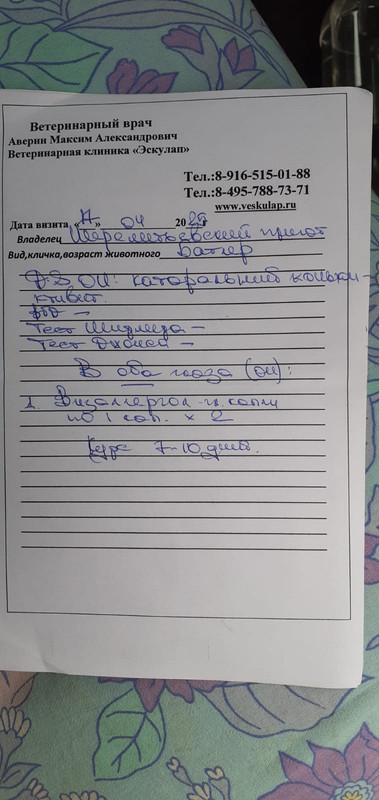 Ветеринарный врач
Аверин Максим Александрович
Ветеринарная клиника «Эскулап»
Тел.:8-916-515-01-88
Тел.:8-495-788-73-71
www.veskulap.ru
Дата визита «» 04 20 г
Владелец Шереметьевский приют
Вид,кличка,возраст животного Батлер
DS, OU: катаральный конъюн-
ктивит.
Тест Ширмера –
Тест Джонса –
В оба глаза (OU):
1. Визаллергол - гл. капли
по 1 кап. × 2
Курс 7-10 дней.